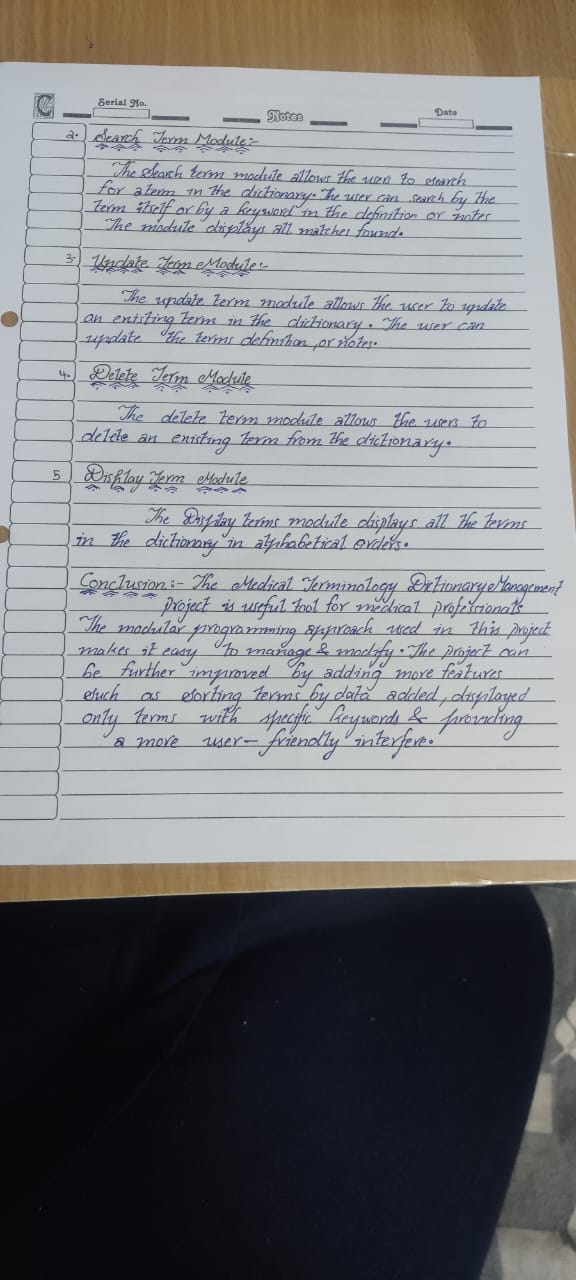 Serial No.
Notes
Date
2. Search Term Module:-
The Search term module allows the users to search
for a term in the dictionary. The user can search by the
term itself or by a keyword in the definition or notes
The module displays all matches found.
3. Update Term Module:-
The update term module allows the user to update
an existing term in the dictionary. The user can
update the terms definition, or notes.
4. Delete Term Module
The delete term module allows the users to
delete an existing term from the dictionary.
5 Display Term Module
The Display terms module displays all the terms
in the dictionary in alphabetical orders.
Conclusion:- The Medical Terminology Dictionary Management
Project is useful tool for medical professionals
The modular programming approach used in this project
makes it easy to manage & modify. The project can
be further improved by adding more features
such as sorting terms by data added, displayed
only terms with specific keywords & providing
a more user-friendly interfere.